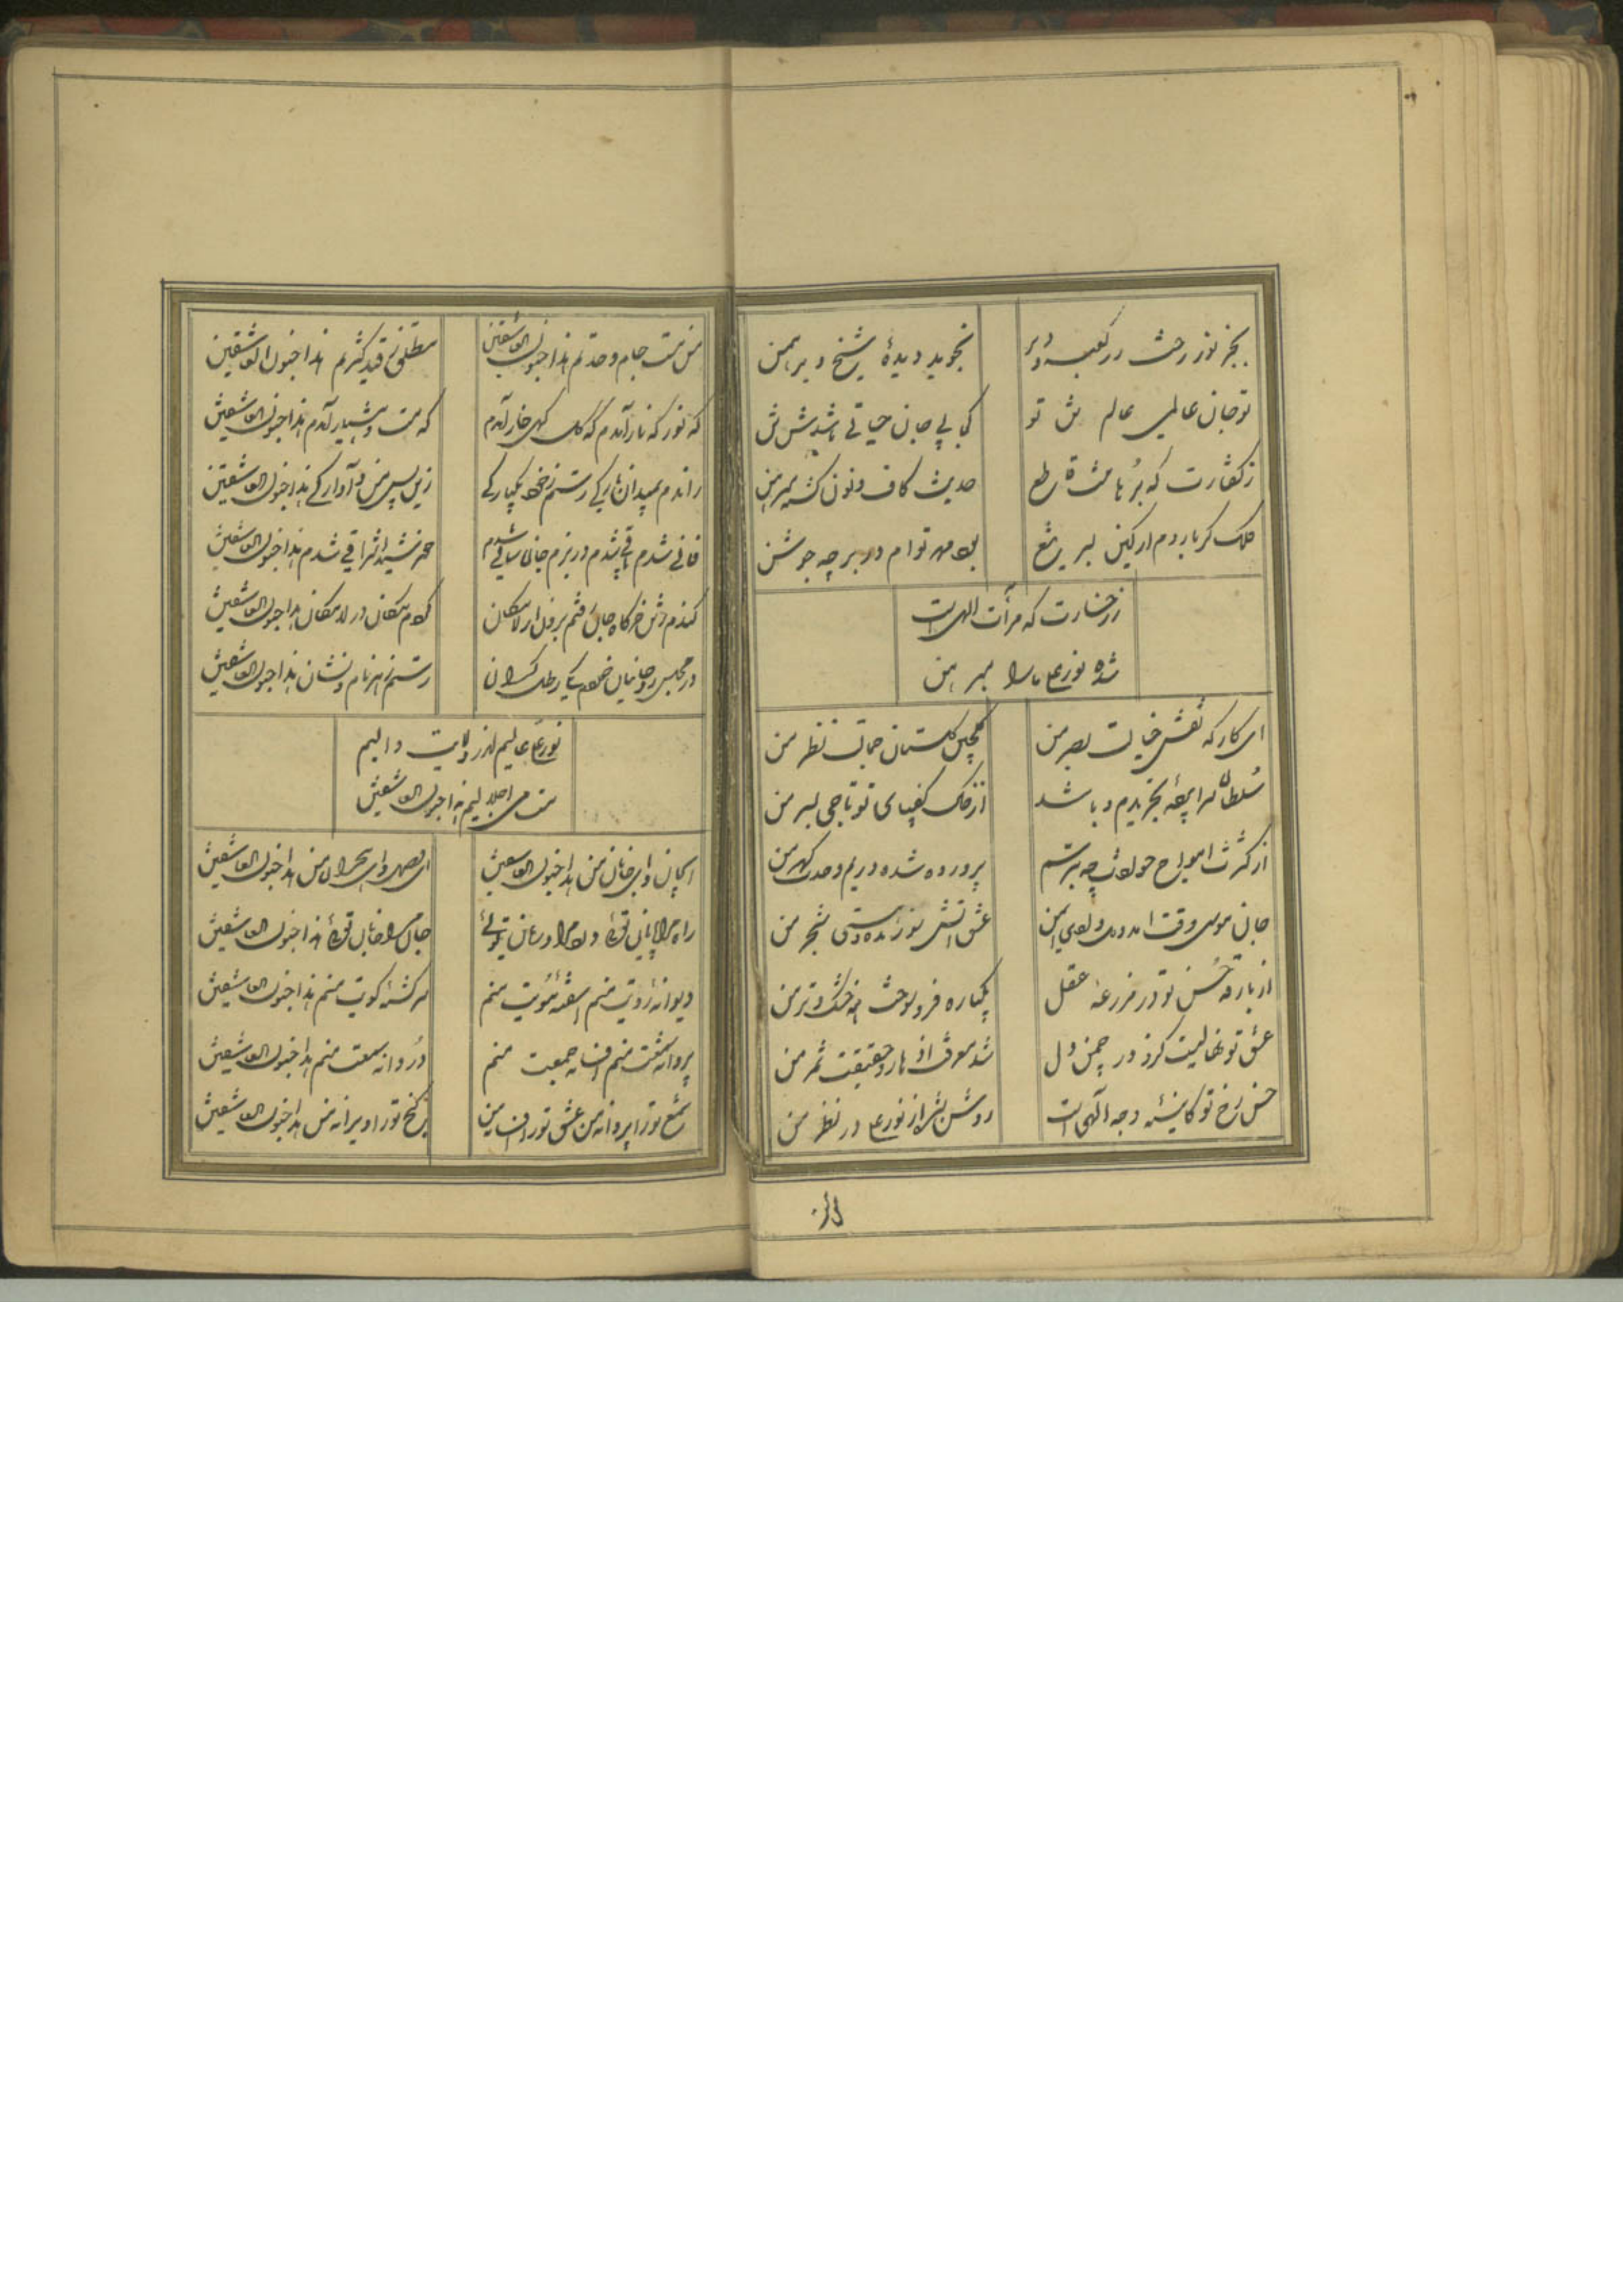 بجز نور رخت در کعبه و دیر
نجوید دیدهٔ شیخ و برهمن
تو جان عالمی عالم تن تو
کجا بی جان حیاتی باشدش تن
ز گفتارت که برهانست قاطع
حدیث کاف و نون گشته مبرهن
فلک گر بارد از کین بر سر تیغ
بود مهر توام در بر چه جوشن
ز رخسارت که مرآت الهی است
شده نور علی ما را مبرهن
ای کار که نقش خیالت بصر من
گلچین گلستان جمالت نظر من
سلطان سراپردهٔ تجریدم و باشد
از خاک کف پای تو تاجی بسر من
از کثرت امواج حوادث چه بترسم
پرورده شده در یم وحدت گهر من
جان موسی وقت آمد و دل وادی ایمن
عشق آتش سوزنده و هستی شجر من
از بارقهٔ حسن تو در مزرعهٔ عقل
یکباره فرو سوخت همه خشک و تر من
عشق تو نهالیست کزو در چمن دل
شد معرفت ازهار و حقیقت ثمر من
حسن رخ تو کاینهٔ وجه آلهی است
روشن شد از نور علی در نظر من
من مست جام وحدتم هذا جنون العاشقین
مطلق ز قید کثرتم هذا جنون العاشقین
که نور که نار آمدم که گل گهی خار آمدم
که مست و هشیار آمدم هذا جنون العاشقین
راندم بمیدان بارگی رستم ز خود یکبارگی
زین پس من و آوارگی هذا جنون العاشقین
فانی شدم باقی شدم در بزم جان ساقی شدم
خورشید اشراقی شدم هذا جنون العاشقین
کندم ز تن خرگاه جان رفتم برون از لامکان
کردم مکان در لامکان هذا جنون العاشقین
در مجلس روحانیان خوردم یکی رطل گران
رستم ز هر نام و نشان هذا جنون العاشقین
نور علی عالیم اندر ولایت والیم
مست می اجلالیم هذا جنون العاشقین
ای جان و ای جانان من هذا جنون العاشقین
ای وصل و ای هجران من هذا جنون العاشقین
راه مرا پایان توئی درد مرا درمان توئی
جان مرا جانان توئی هذا جنون العاشقین
دیوانهٔ رویت منم آشفتهٔ مویت منم
سرگشتهٔ کویت منم هذا جنون العاشقین
پروانهٔ شمعت منم افسانهٔ جمعت منم
دردانهٔ سمعت منم هذا جنون العاشقین
شمع تو را پروانه من عشق تو را افسانه من
گنج تو را ویرانه من هذا جنون العاشقین